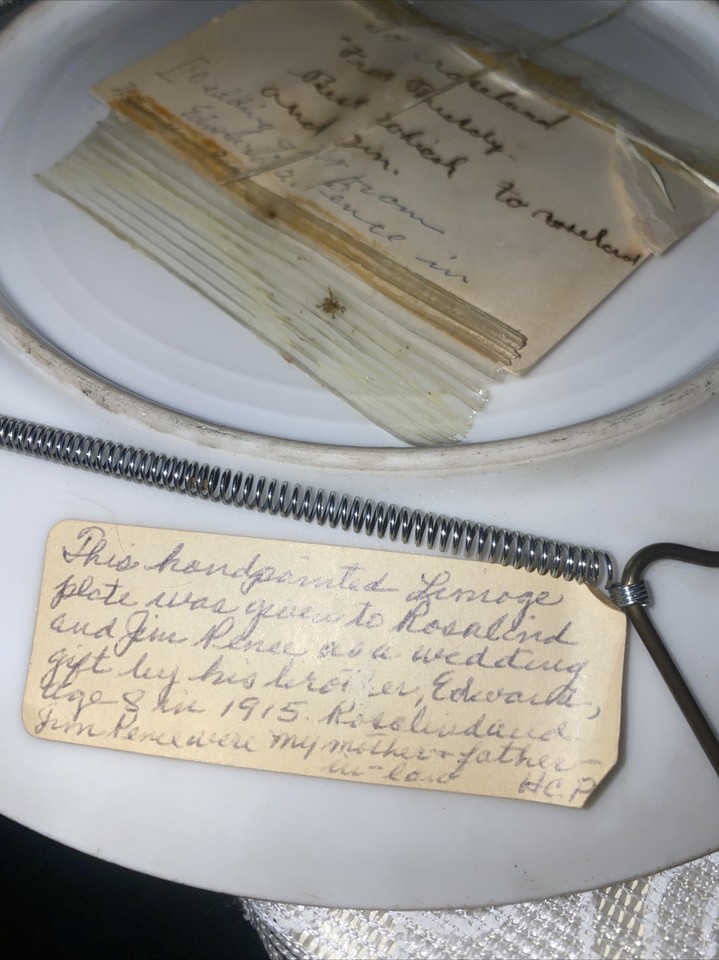 To roseland
from Buddy.
Best wishes to roseland
and Jim.
[Wedding gift from
Edward A. Pence in
This handpainted Limoge
plate was given to Rosalind
and Jim Pence as a wedding
gift by his brother, Edward,
age 8 in 1915. Rosalind and
Jim Pence were my mother + father-
in-law H.C.P.